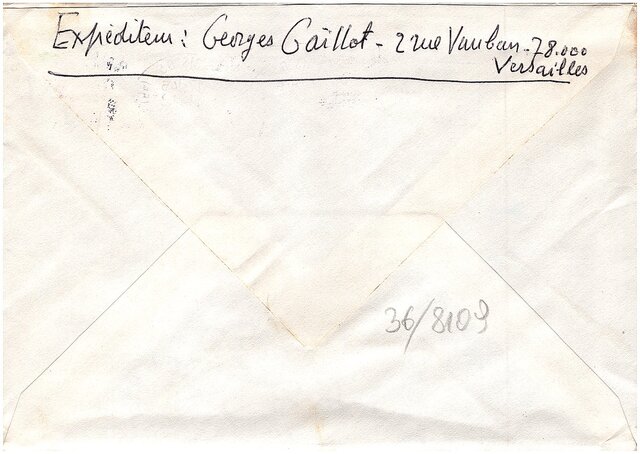 Expéditeur : Georges Gaillot - 2 rue Vauban - 78.000
Versailles
36/8109